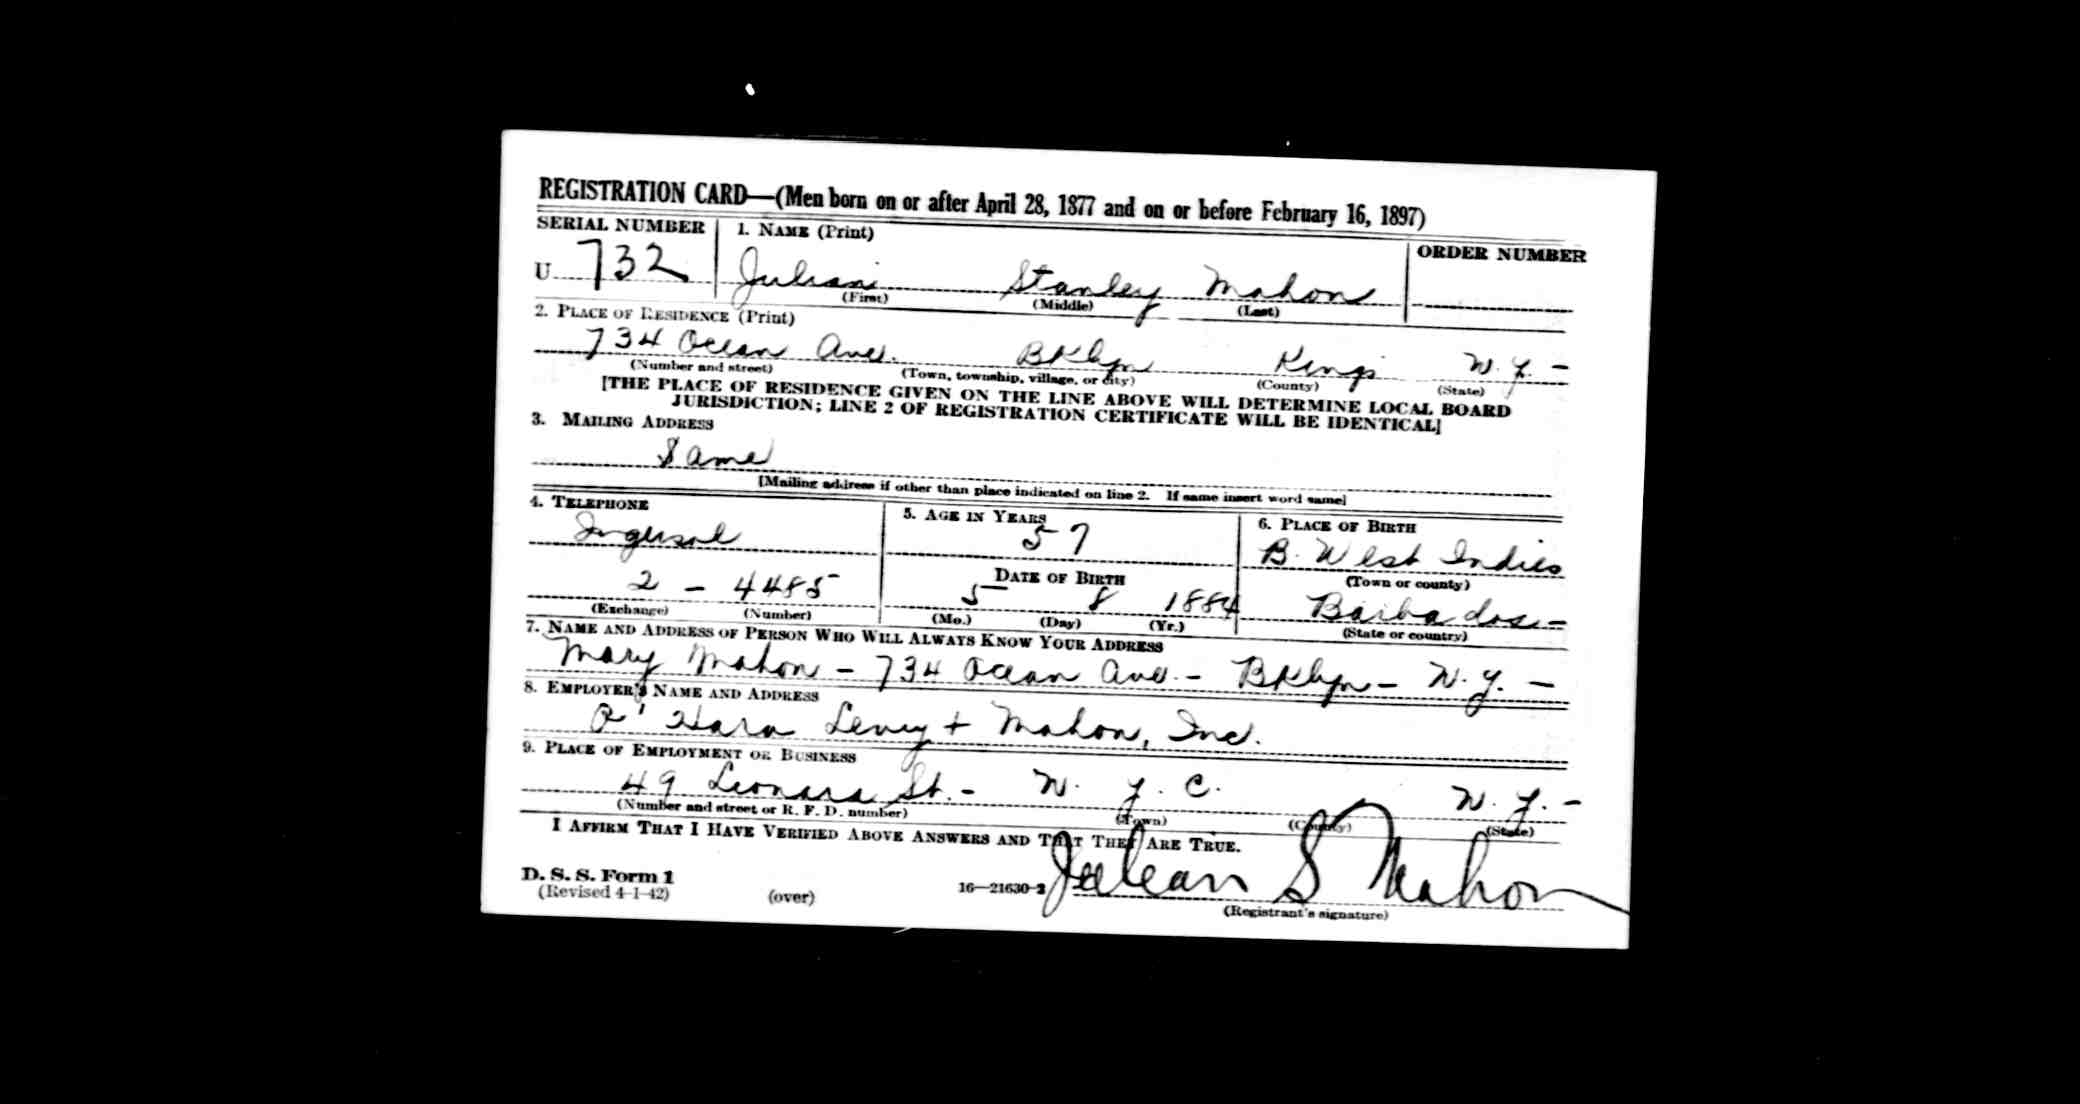 REGISTRATION CARD—(Men born on or after April 28, 1877 and on or before February 16, 1897)
SERIAL NUMBER 1. NAME (Print) ORDER NUMBER
U 732 Julian Stanley Mahon
(First) (Middle) (Last)
2. PLACE OF RESIDENCE (Print)
734 Ocean Ave. BKlyn Kings N. Y. -
(Number and street) (Town, township, village, or city) (County) (State)
[THE PLACE OF RESIDENCE GIVEN ON THE LINE ABOVE WILL DETERMINE LOCAL BOARD
JURISDICTION; LINE 2 OF REGISTRATION CERTIFICATE WILL BE IDENTICAL]
3. MAILING ADDRESS
Same
[Mailing address if other than place indicated on line 2. If same insert word same]
4. TELEPHONE 5. AGE IN YEARS 6. PLACE OF BIRTH
Ingersol 57 B. West Indies
DATE OF BIRTH (Town or county)
2 - 4485 5 8 1884 Barbados -
(Exchange) (Number) (Mo.) (Day) (Yr.) (State or country)
7. NAME AND ADDRESS OF PERSON WHO WILL ALWAYS KNOW YOUR ADDRESS
Mary Mahon - 734 Ocean Ave. - BKlyn - N. Y. -
8. EMPLOYER'S NAME AND ADDRESS
O'Hara Levey + Mahon, Inc.
9. PLACE OF EMPLOYMENT OR BUSINESS
49 Leonard St. - N. Y. C. N. Y. -
(Number and street or R. F. D. number) (Town) (County) (State)
I AFFIRM THAT I HAVE VERIFIED ABOVE ANSWERS AND THAT THEY ARE TRUE.
D. S. S. Form 1
(Revised 4-1-42) (over) 16—21630-2 Julian S Mahon
(Registrant's signature)